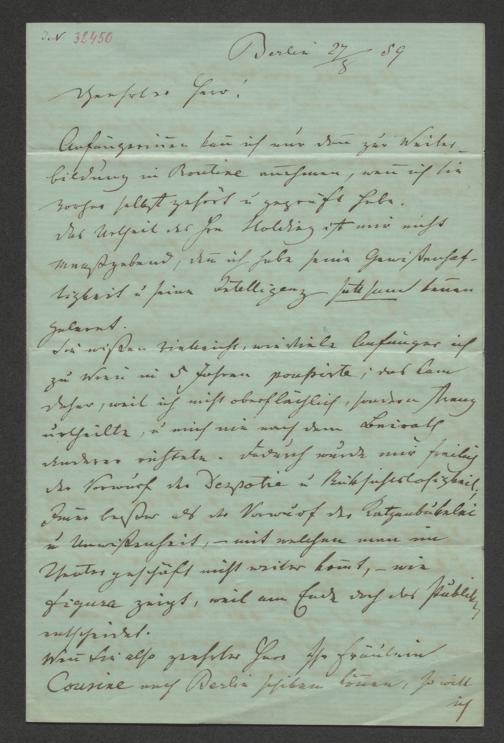 I.N 32450
Berlin 27/8 89
Geehrter Herr!
Anfängerinnen kann ich nur dann zur Weiter-
bildung in Routine annehmen, wenn ich sie
vorher selbst gehört u geprüft habe.
Das Urtheil des Hrn Holding ist mir nicht
maaßgebend, denn ich habe seine Gewißenhaf-
tigkeit u seine Intelligenz sattsam kennen
gelernt.
Sie wißen vielleicht, wieviele Anfänger ich
zu Wien in 5 Jahren poussirte; das kam
daher, weil ich nicht oberflächlich, sondern streng
urtheilte, u mich nie nach dem Beirath
Anderer richtete. Dadurch wurde mir freilich
der Vorwurf der Despotie u Rücksichtslosigkeit;
Immer beßer als der Vorwurf der Katzenbukelei
u Unwißenheit, – mit welchen man im
Theatergeschäft nicht weiter kommt, – wie
figura zeigt, weil am Ende doch das Publikum
entscheidet.
Wenn Sie also geehrter Herr Ihr Fräulein
Cousine nach Berlin schiken können, so will
ich